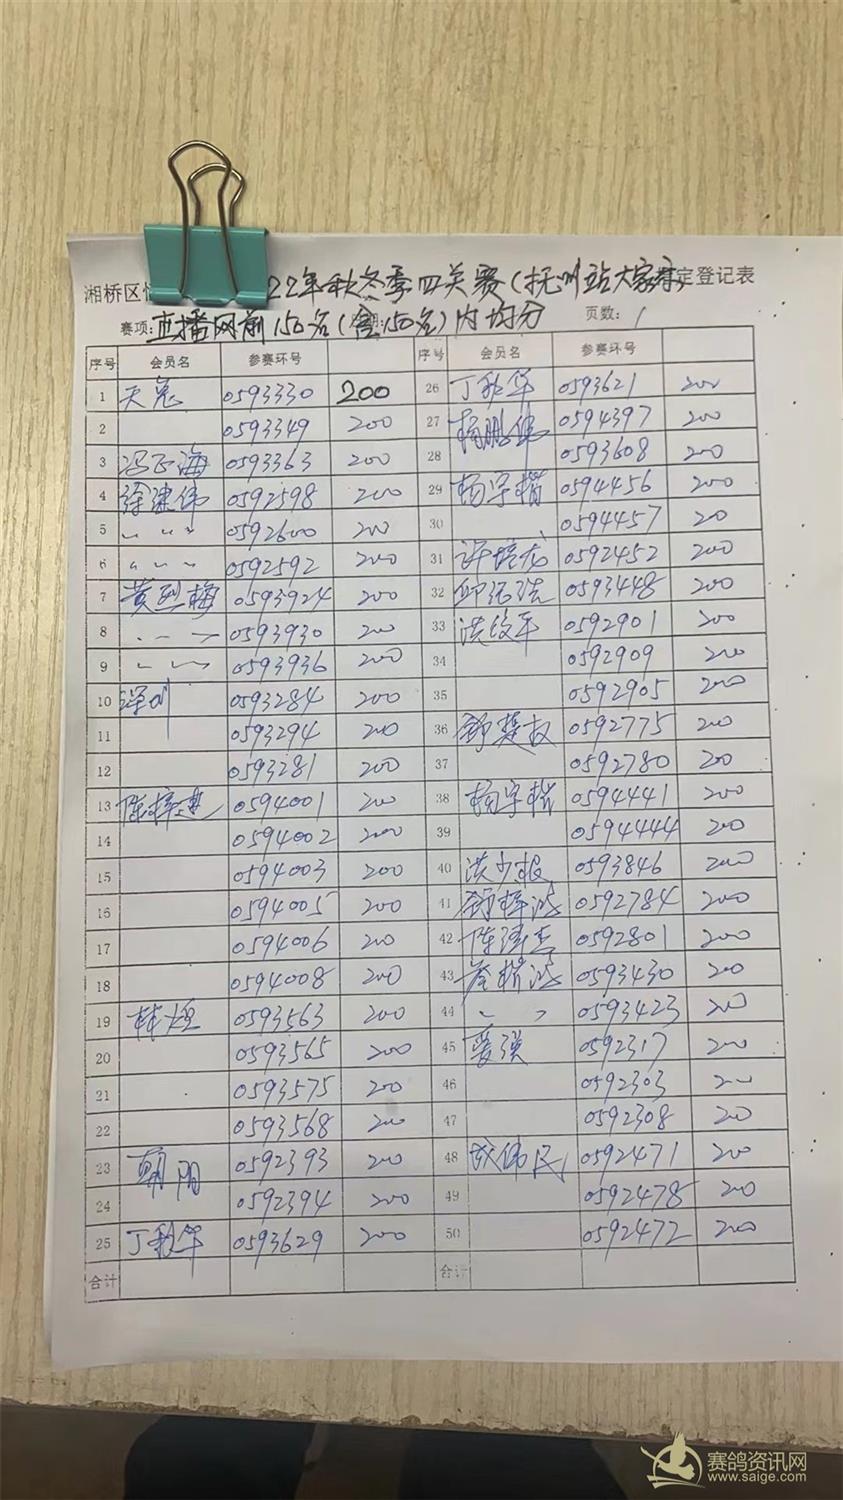 湘桥区 22年秋冬季四关赛(抚州站大家 定登记表
赛项: 直播网前150名(含150名)内均分 页数: 1
序号 会员名 参赛环号 序号 会员名 参赛环号
1 天 0593330 200 26 丁秋华 0593621 200
2 0593349 200 27 杨鹏伟 0594397 200
3 冯正海 0593363 200 28 0593608 200
4 徐建伟 0592598 200 29 杨宇楷 0594456 200
5 〃 〃 〃 0592600 200 30 0594457 200
6 〃 〃 〃 0592592 200 31 许培龙 0592452 200
7 黄烈梅 0593924 200 32 邱 0593448 200
8 0593930 200 33 洪 平 0592901 200
9 0593936 200 34 0592909 200
10 深圳 0593284 200 35 0592905 200
11 0593294 200 36 楚 0592775 200
12 0593281 200 37 0592780 200
13 陈梓 0594001 200 38 杨宇楷 0594441 200
14 0594002 200 39 0594444 200
15 0594003 200 40 洪少 0593846 200
16 0594005 200 41 梓 0592784 200
17 0594006 200 42 陈 0592801 200
18 0594008 200 43 0593430 200
19 林烜 0593563 200 44 0593423 200
20 0593565 200 45 爱强 0592317 200
21 0593575 200 46 0592303 200
22 0593568 200 47 0592308 200
23 朝阳 0592393 200 48 伟民 0592471 200
24 0592394 200 49 0592478 200
25 丁秋华 0593629 200 50 0592472 200
合计 合计
赛鸽资讯网
www.saige.com